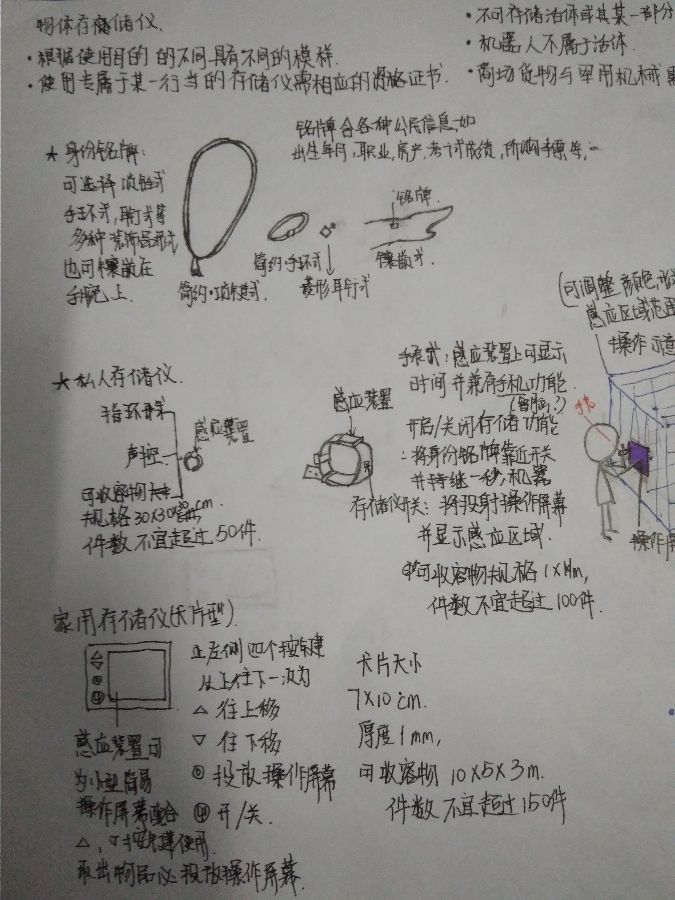 物体存储仪.
• 根据使用目的的不同具有不同的模样.
• 使用专属于某一行当的存储仪需相应的资格证书.
• 不可存储活体或其某一部分
• 机器人不属于活体.
• 商场货物与军用机械
铭牌含各种公民信息,如
出生年月,职业,房产,考试成绩,所购车票等,…
★ 身份铭牌:
可选择项链式
手环式,耳钉式等
多种装饰品形式
也可镶嵌在
手腕上.
简约·项链式.
简约·手环式
菱形耳钉式
铭牌.
镶嵌式.
(可调整颜色,形
感应区域范围
操作示意
★ 私人存储仪.
指环式
声控
感应装置
可收容物
规格30X30X cm.
件数不宜超过50件.
感应装置
手表式:感应装置上可显示
时间并兼有手机功能.
(电脑?)
开启/关闭存储功能
:将身份铭牌靠近开关
并持续一秒,机器
存储仪开关:将投射操作屏幕
并显示感应区域.
可收容物规格1X1Xm,
件数不宜超过100件.
手表
操作屏
家用存储仪(卡片型).
正左侧四个按键
从上往下一次为
△ 往上移
▽ 往下移
◎ 投放操作屏幕
开/关.
感应装置可
为小型简易
操作屏幕配合
△,▽按键使用.
取出物品必投放操作屏幕.
卡片大小
7X10cm.
厚度1mm,
可收容物10X5X3m.
件数不宜超过150件